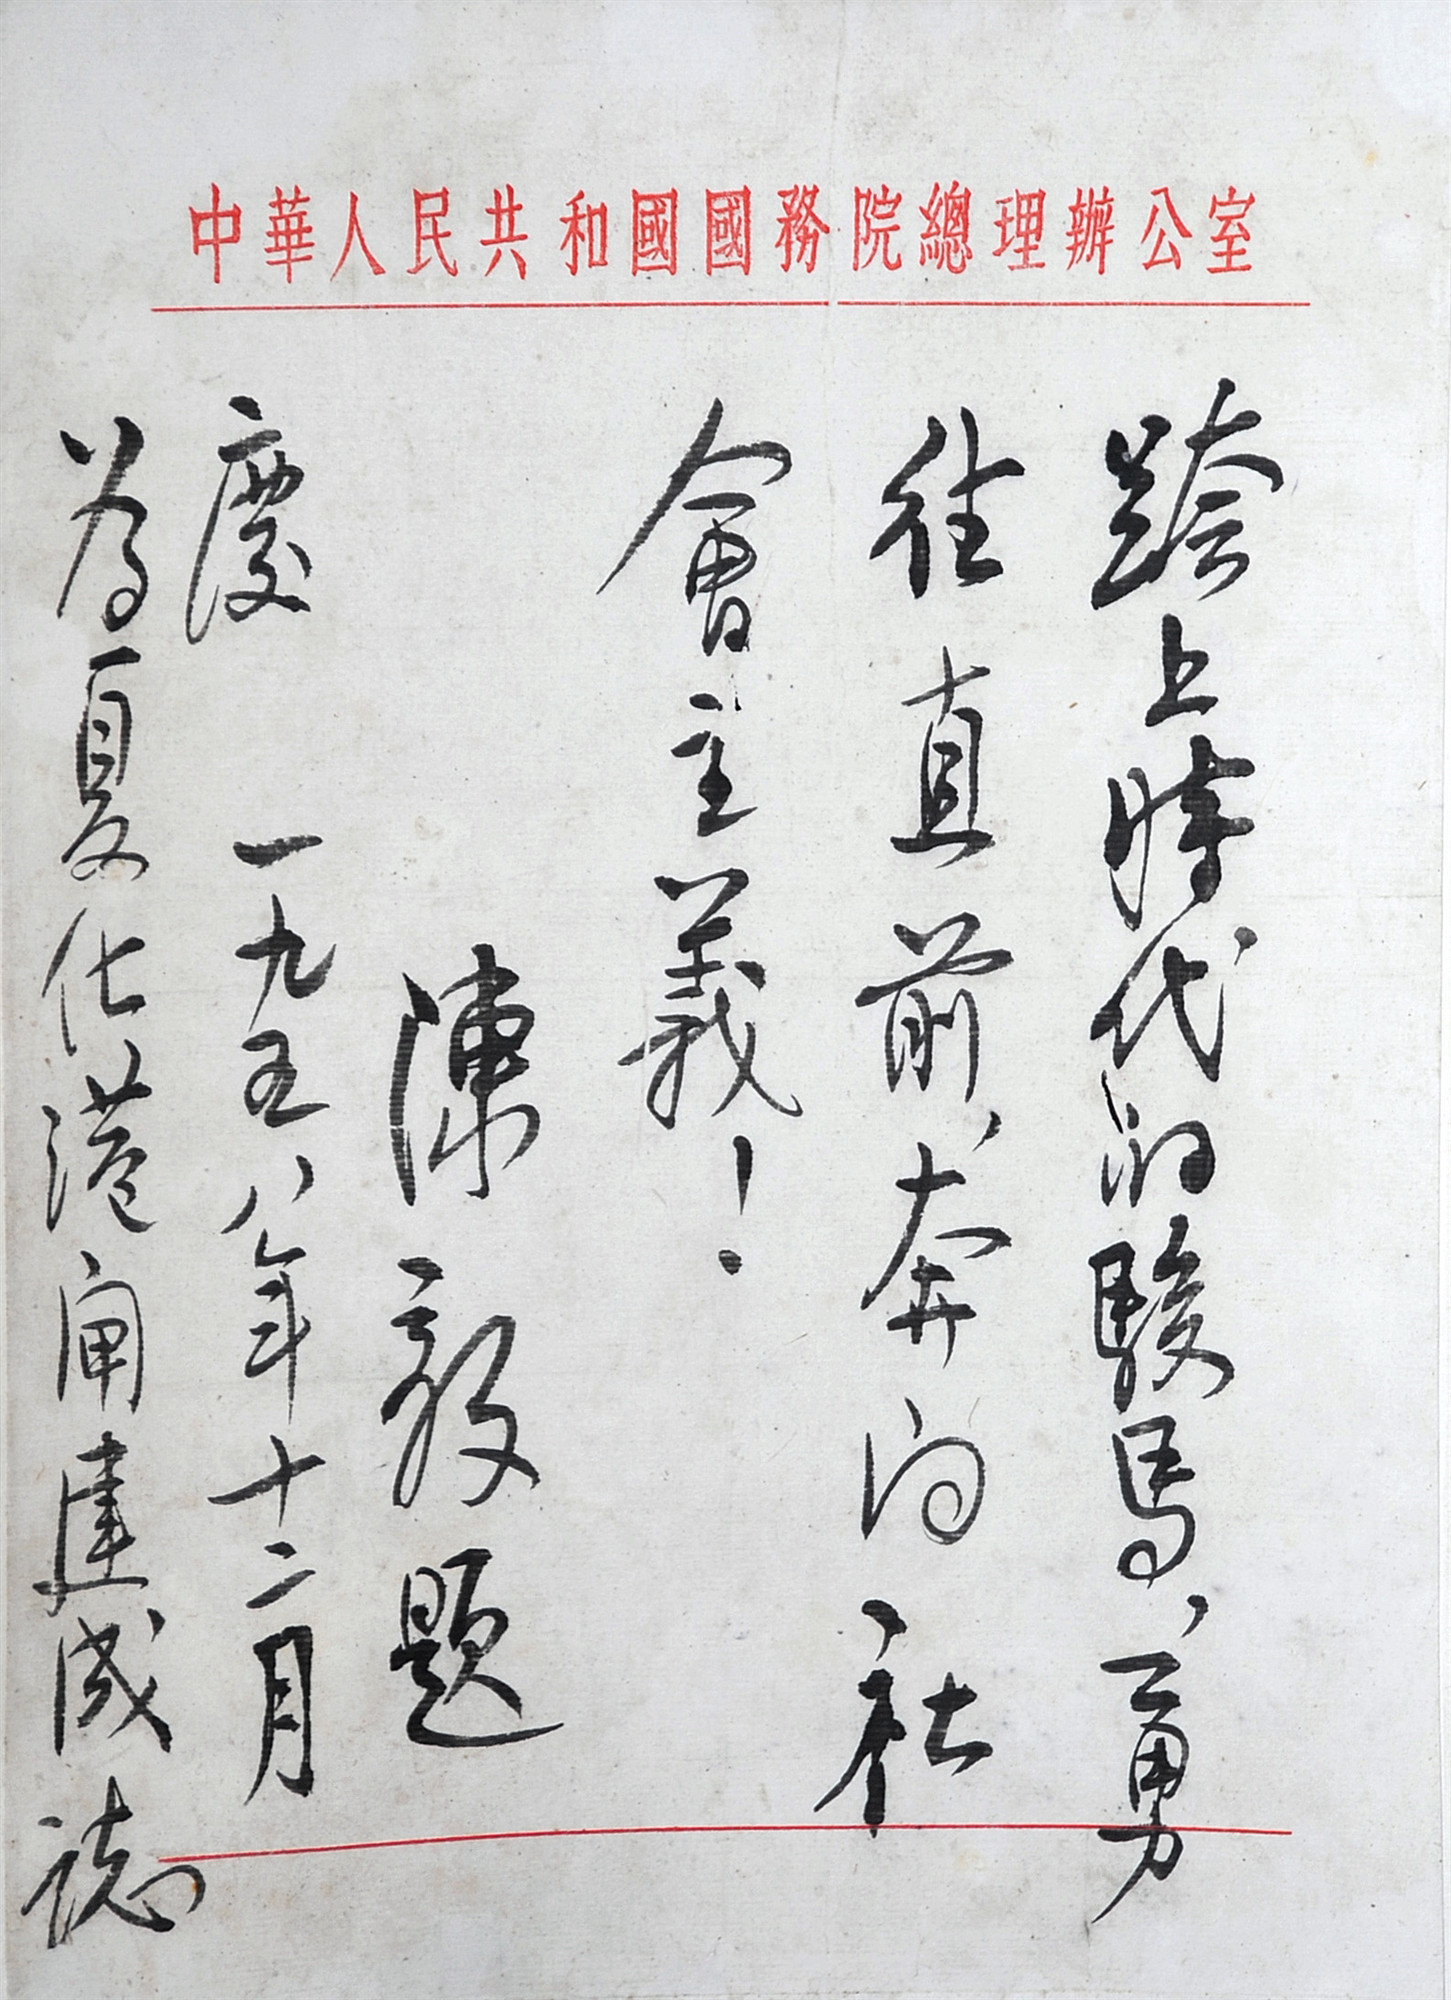 中華人民共和國國務院總理辦公室
跨上時代的駿馬、勇
往直前、奔向社
會主義！
陳毅題
一九五八年十二月
為夏仕港閘建成誌
慶